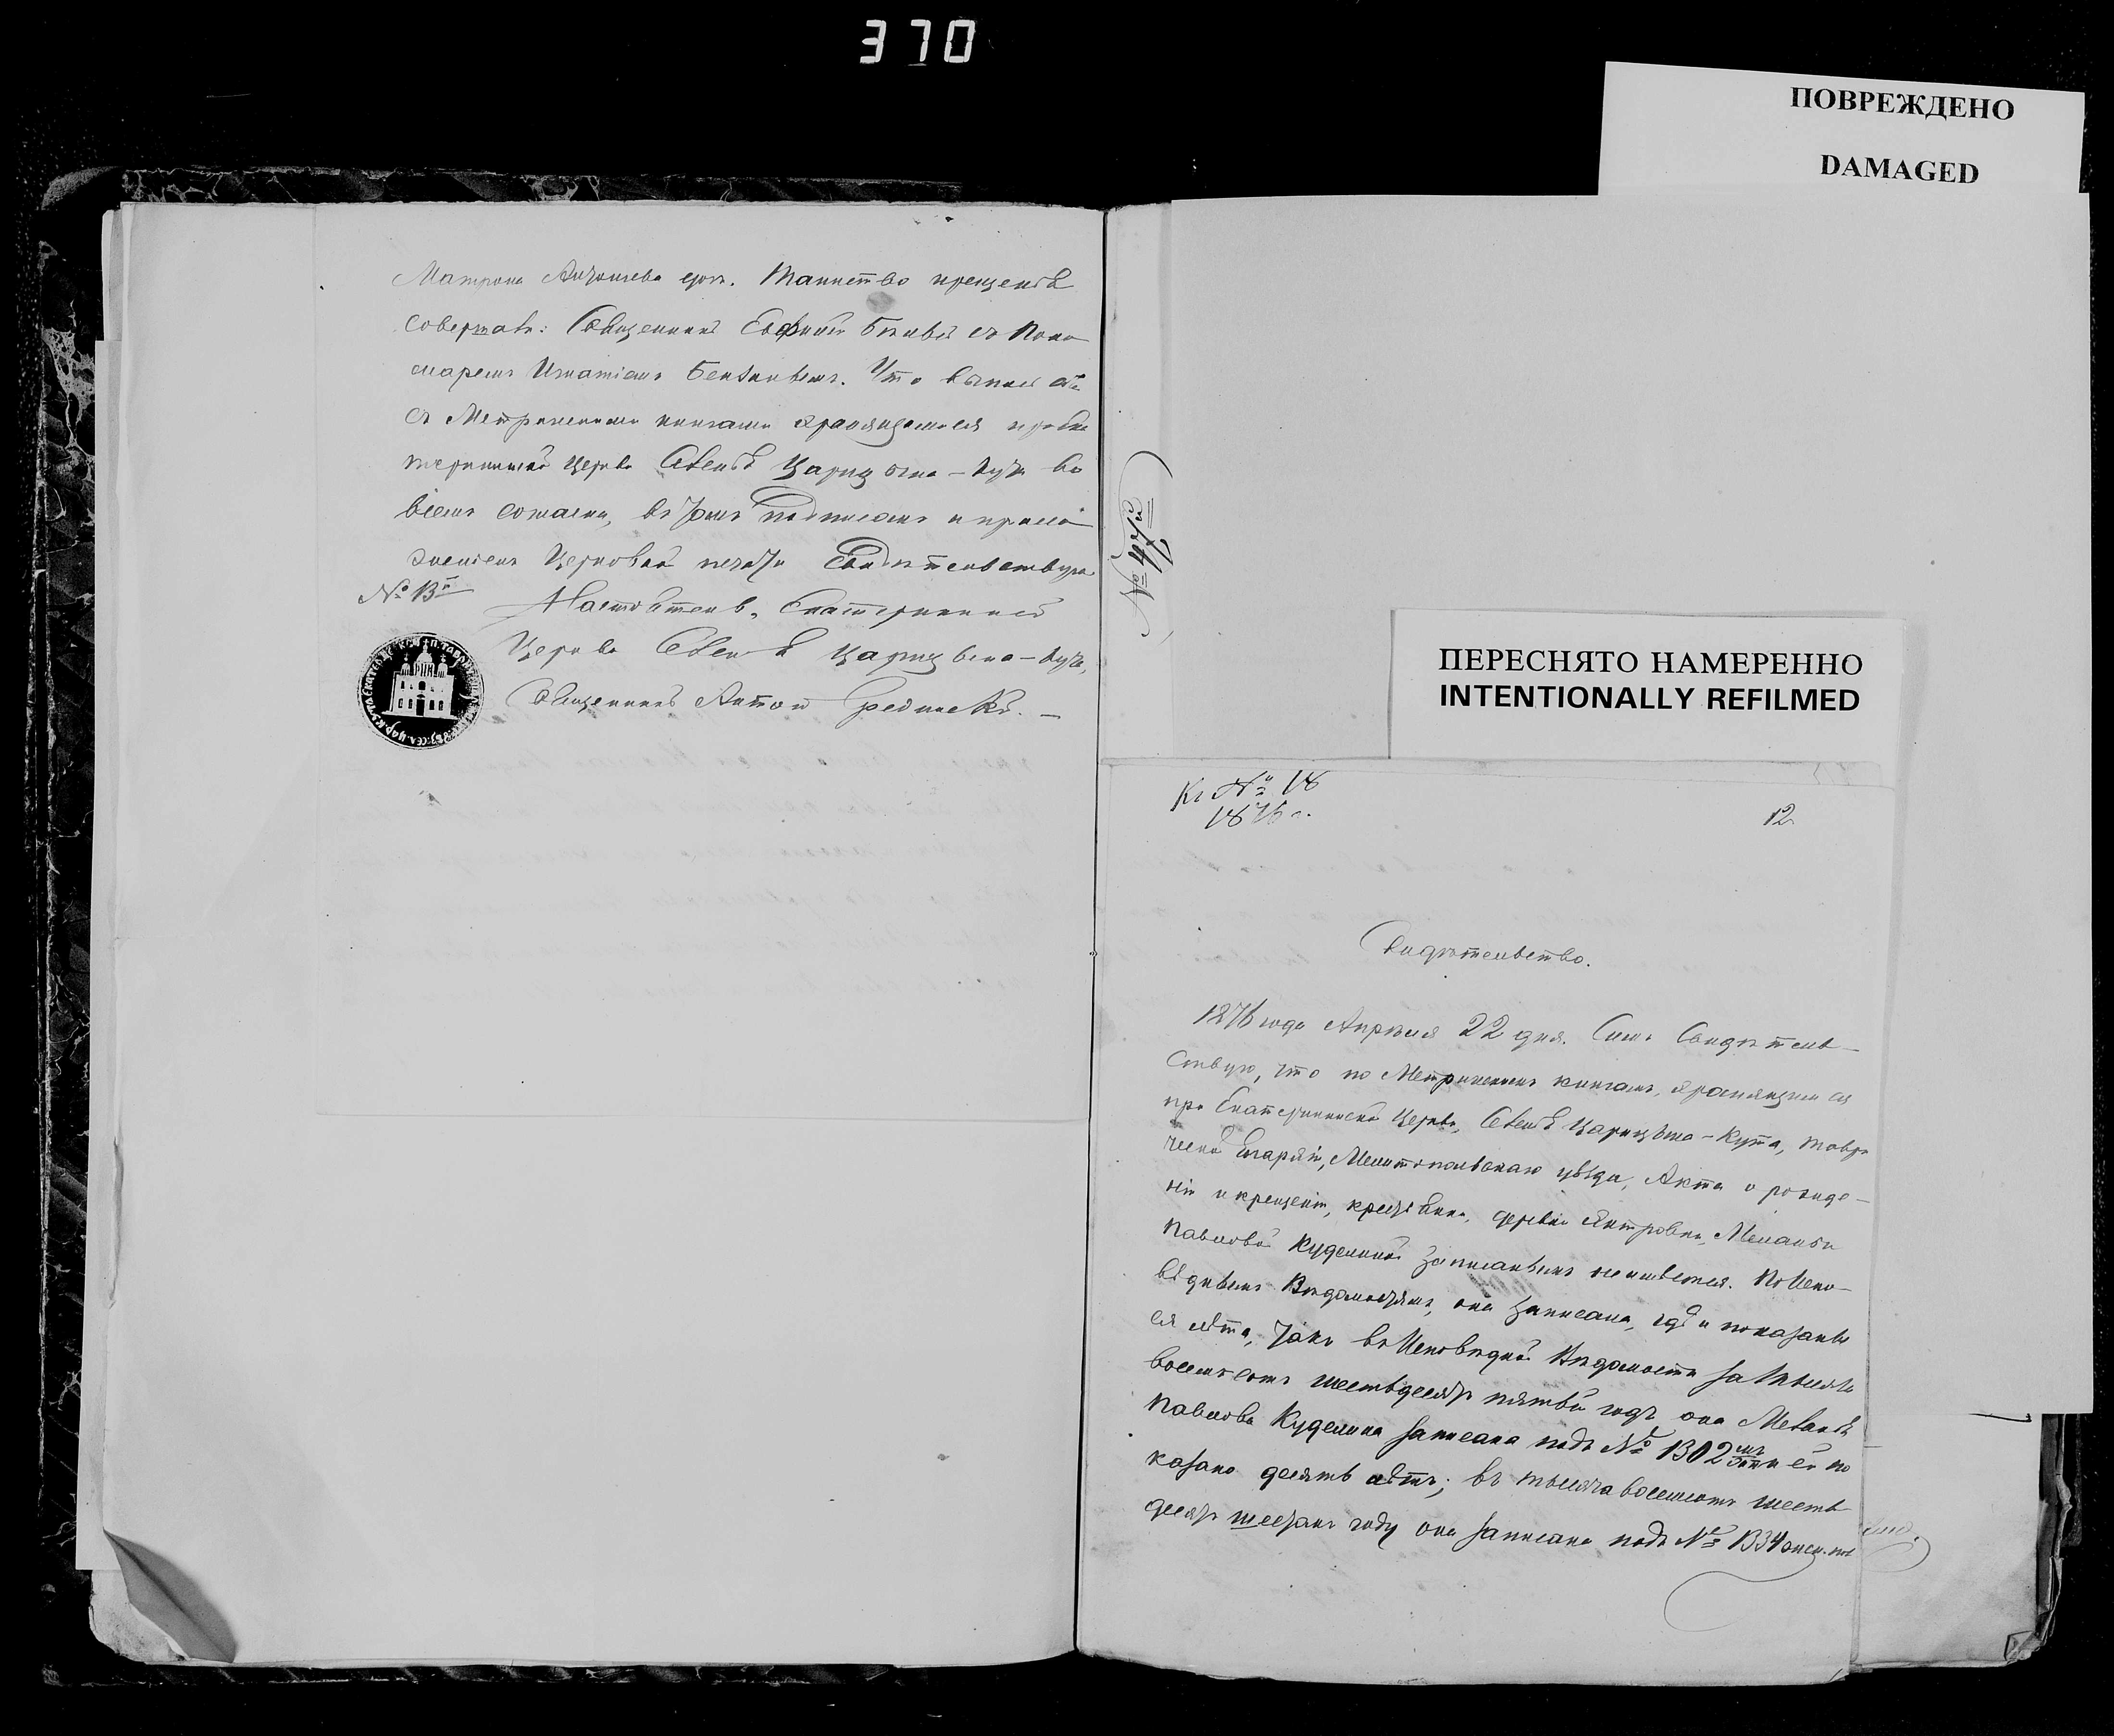 370
ПОВРЕЖДЕНО
DAMAGED
Матрона дочь. Таинство крещенія
совершалъ: Священникъ Евфимій съ Поно
маремъ Игнатіемъ. Что выпись сія
съ Метрическими книгами хранящимися при Ека
терининской Церкви Селенія Царицына-Кута во
всемъ согласна, въ томъ подписомъ и прило
женіемъ Церковной печати Свидѣтельствую
№ 13й
Настоятель, Екатерининской
Церкви Селенія Царицына-Кута,
Священникъ Антоній
№ 74й
ПЕРЕСНЯТО НАМЕРЕННО
INTENTIONALLY REFILMED
Къ № 18
1876 г.
12
Свидѣтельство.
1876 года Апрѣля 22 дня. Симъ Свидѣтель-
ствую, что по Метрическимъ книгамъ, хранящимся
при Екатерининской Церкви, Селенія Царицына-Кута, Таври
ческой Епархіи, Мелитопольскаго уѣзда, Акта о рожде-
ніи и крещеніи, крестьянки, деревни Янтровки, Меланьи
Павловой Куделиной записаннымъ неимѣется. По Испо-
вѣднымъ Вѣдомостямъ, она записана, гдѣ и показаны
ея лѣта, такъ въ Исповѣдной Вѣдомости за тысяча
восемьсотъ шестьдесятъ пятый годъ она Меланія
Павлова Куделина записана подъ № 1302 мъ и ей по
казано десять лѣтъ; въ тысяча восемьсотъ шесть-
десятъ шестомъ году она записана подъ № 1334